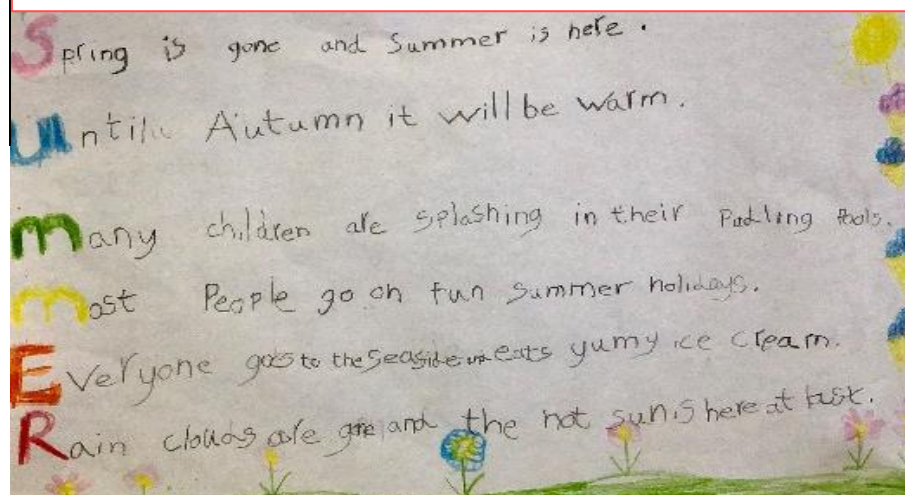 Spring is gone and Summer is here.
Until Autumn it will be warm.
Many children are splashing in their Paddling Pools.
Most People go on fun summer holidays.
Everyone goes to the Seaside eats yumy ice cream.
Rain clouds are gone and the hot sun is here at last.